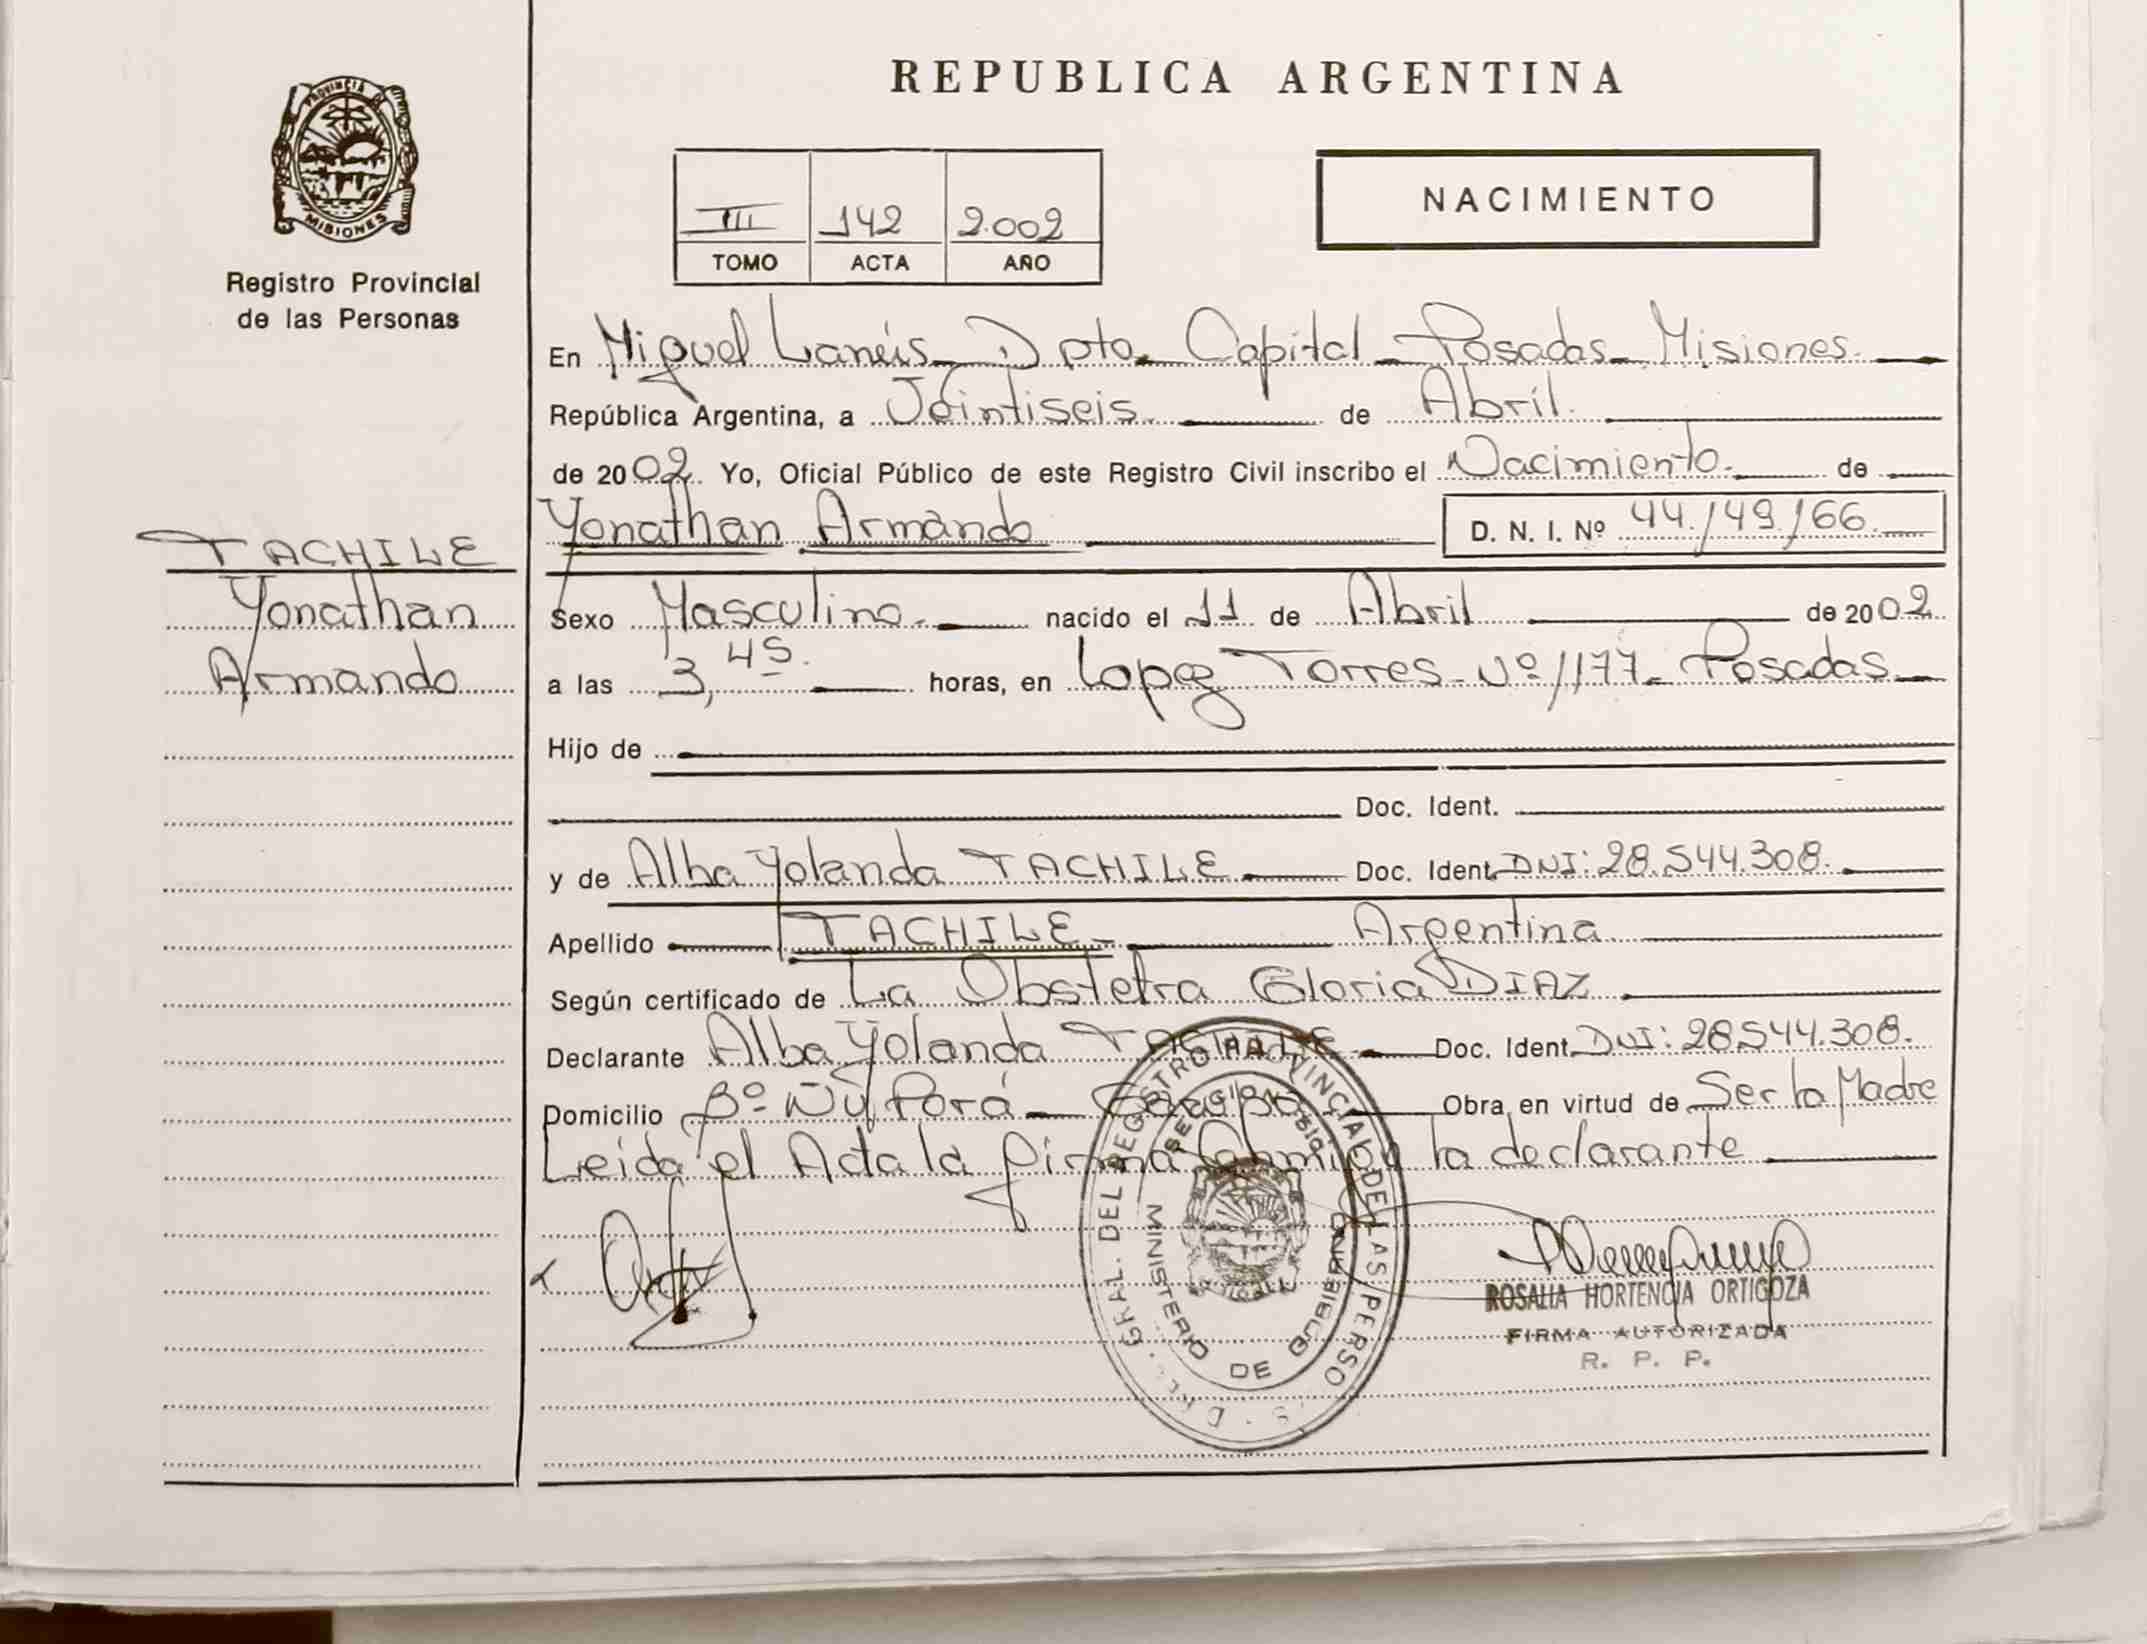 REPUBLICA ARGENTINA
PROVINCIA DE MISIONES
Registro Provincial
de las Personas
III 142 2.002
TOMO ACTA AÑO
NACIMIENTO
En Miguel Lanús Dpto. Capital Posadas Misiones.
República Argentina, a Veintiseis de Abril.
de 2002. Yo, Oficial Público de este Registro Civil inscribo el Nacimiento. de
Yonathan Armando D. N. I. Nº 44./149/66.
TACHILE
Yonathan
Armando
Sexo Masculino. nacido el 11 de Abril de 2002.
a las 3,45. horas, en Lopez Torres Nº 1177 Posadas
Hijo de
Doc. Ident.
y de Alba Yolanda TACHILE Doc. Ident. DNI: 28.544.308.
Apellido TACHILE Argentina
Según certificado de La Obstetra Gloria DIAZ
Declarante Alba Yolanda TACHILE Doc. Ident. DNI: 28.544.308.
Domicilio Bº Ñu Porá Obra en virtud de Ser la Madre
Leida el Acta la firma la declarante
GRAL. DEL REGISTRO PROVINCIAL DE LAS PERSO
MINISTERIO DE GOBIERNO
ROSALIA HORTENCIA ORTIGOZA
FIRMA AUTORIZADA
R. P. P.